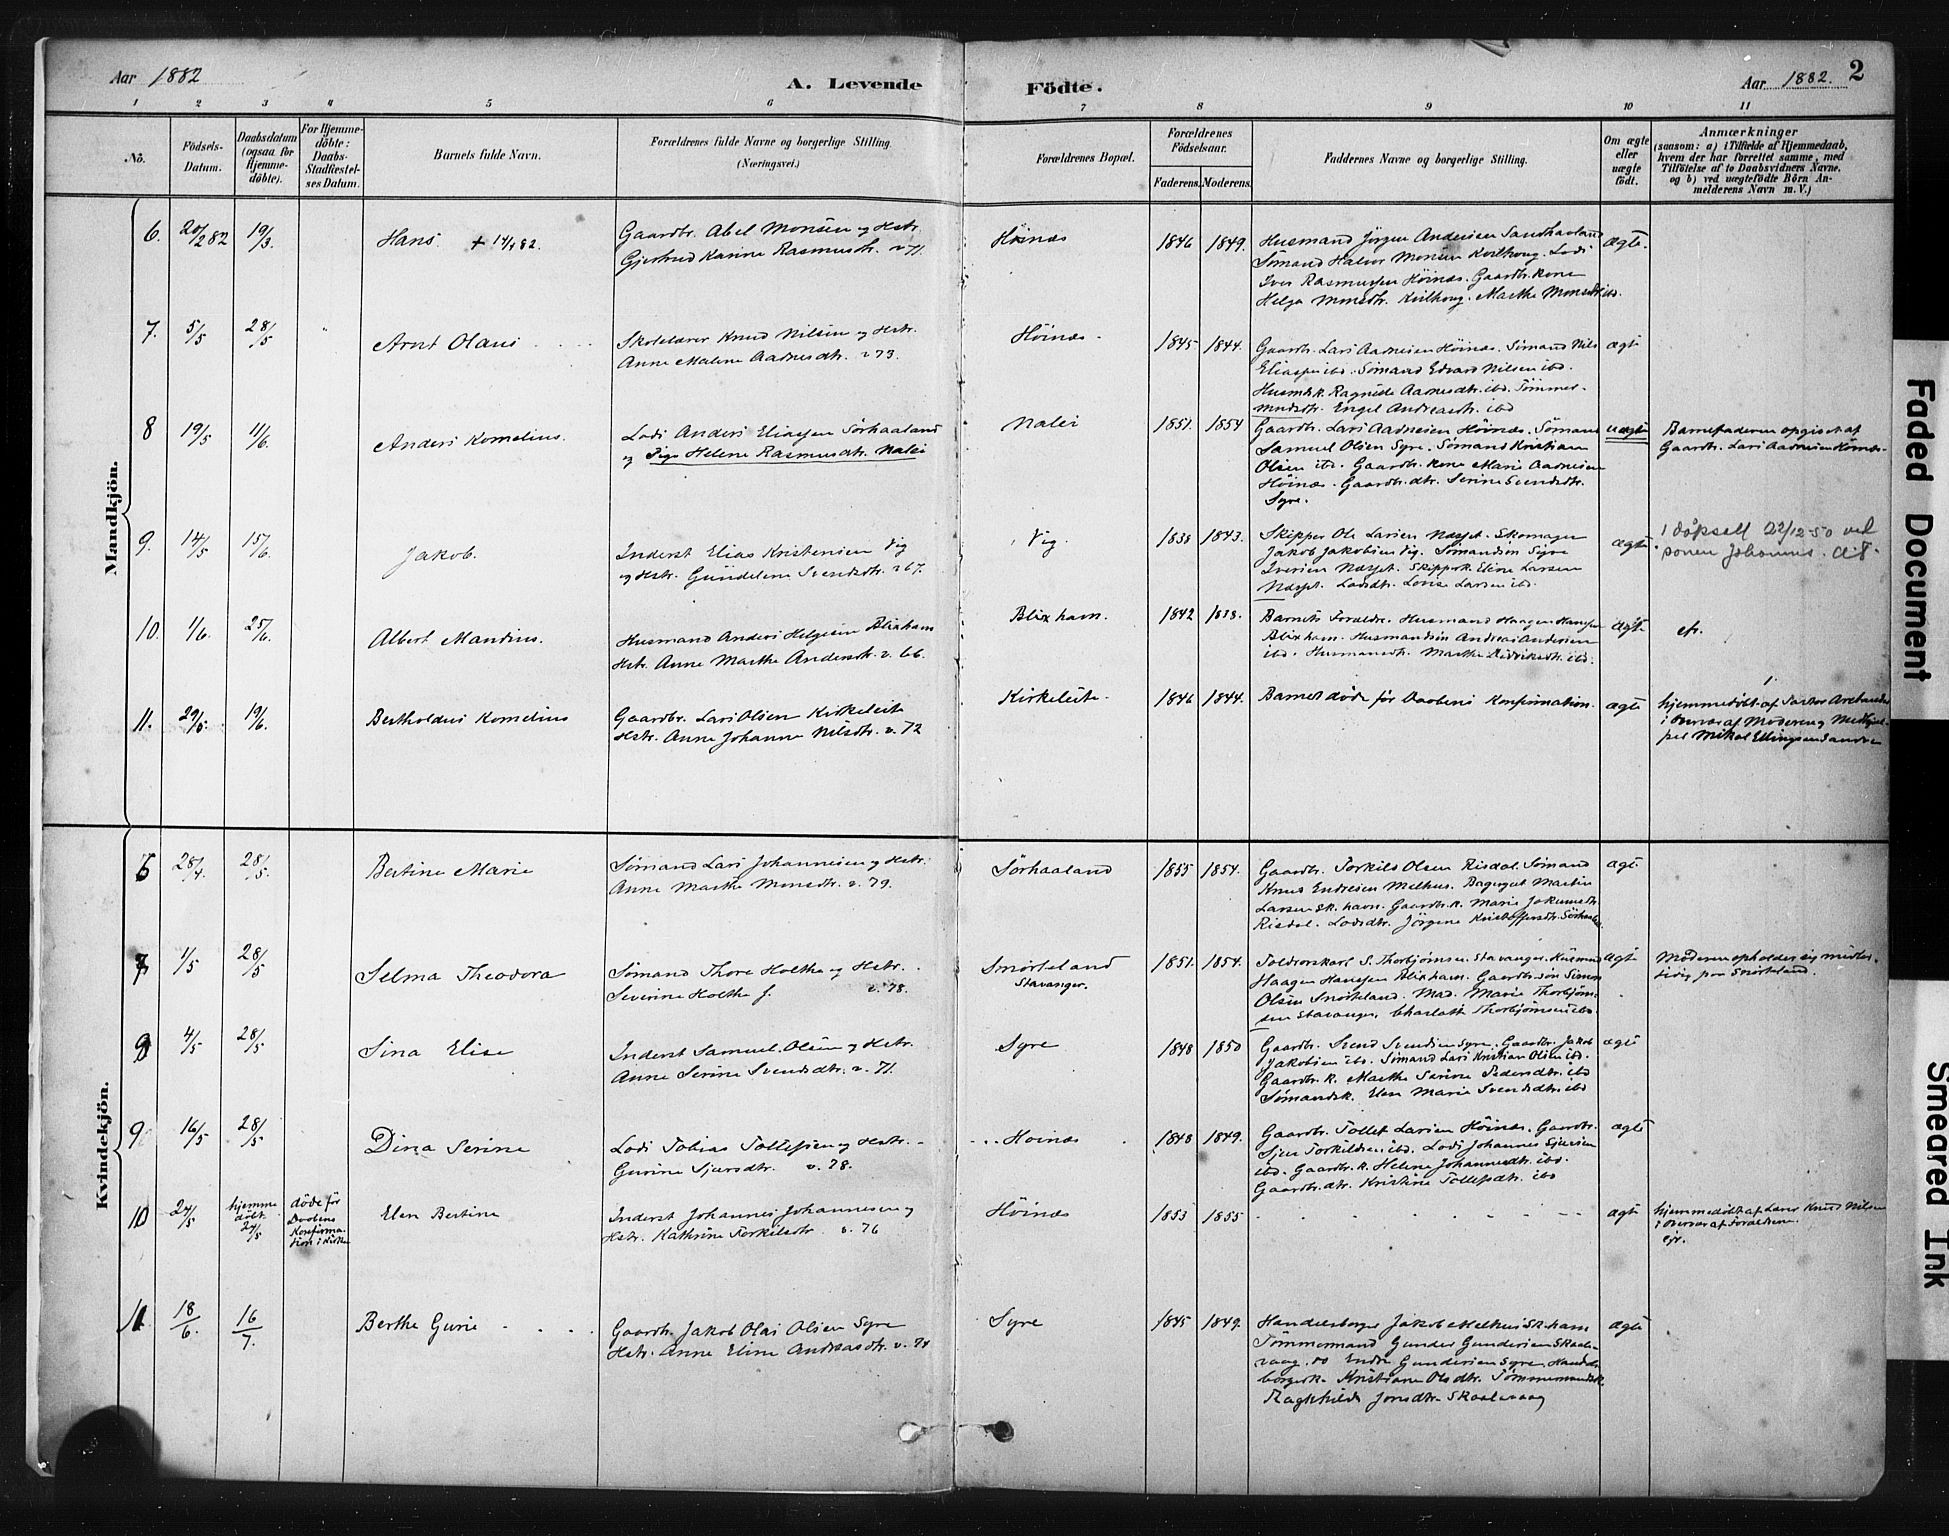 Aar 1882
A. Levende Födte.
Aar 1882. 2
1 2 3 4 5 6 7 8 9 10 11
No.
Födsels-
Datum.
Daabsdatum
(ogsaa for
Hjemme-
döbte).
For Hjemme-
döbte:
Daabs-
Stadfæstel-
ses Datum.
Barnets fulde Navn.
Forældrenes fulde Navne og borgerlige Stilling.
(Næringsvei.)
Forældrenes Bopæl.
Forældrenes
Födselsaar.
Faderens. Moderens.
Faddernes Navne og borgerlige Stilling.
Om ægte
eller
uægte
födt.
Anmærkninger
(saasom: a) i Tilfælde af Hjemmedaab,
hvem der har forrettet samme, med
Tilföielse af to Daabsvidners Navne,
og b) ved uægtefödte Börn An-
melderens Navn m. V.)
Mandkjön.
6. 20/2 82 19/3 Hans + 14/4 82. Gaardbr. Abel Monsen og Hstr.
Gjertrud Karine Rasmusdtr. v. 71.
Höinæs 1846 1849. Husmand Jörgen Andersen Sandhaaland
Sömand Halvor Monsen Kvilhoug. Lods
Iver Rasmussen Höinæs. Gaardbr. kone
Helga Monsdtr. Kvilhoug. Marthe Monsdtr. ibd.
ægte.
7. 5/5 28/5 Arnt Olaus Skolelærer Knud Nilsen og Hstr.
Anne Malene Aadnesdtr. v. 73.
Höinæs. 1845 1844. Gaardbr. Lars Aadnesen Höinæs. Sömand Nils
Eliassen ibd. Sömand Edvard Nilsen ibd.
Husmdsk. Ragnilde Aanesdtr. ibd. Tömmer-
mndsdtr. Engel Andreasdtr. ibd
ægte
8 19/5 11/6. Anders Kornelius. Lods Anders Eliassen Sörhaaland
og Pige Helene Rasmusdtr. Nalei
Nalei 1851. 1854 Gaardbr. Lars Aadnesen Höinæs. Sömand
Samuel Olsen Syre. Sömand Kristian
Olsen ibd. Gaardbr. kone Marie Aadnesen
Höinæs. Gaardbr. dtr. Serine Svendsdtr.
Syre.
uægte Barnefaderen opgivet af
Gaardbr. Lars Aadnesen Höinæs.
9. 14/5 15/6. Jakob. Inderst Elias Kristensen Vig
og Hstr. Gundelene Svendsdtr. v. 67.
Vig. 1838 1843. Skipper Ole Larsen Næsset. Skomager
Jakob Jakobsen Vig. Sömandsön Syvre
Iversen Næsset. Skippersk. Eline Larsen
Næsset. Lodsdtr. Lovise Larsen ibd.
ægte 1 döpsatt 22/12-50 ved
sonen Johannes.
10. 1/6. 25/6. Albert Mandius. Husmand Anders Helgesen Blixhavn
Hstr. Anne Marthe Andersdtr. v. 66.
Blixhavn. 1842 1838. Barnets Forældre. Husmand Haagen Hansen
Blixhavn. Husmandsön Andreas Andersen
ibd. Husmandsdtr. Marthe Didriksdtr. ibd.
ægte
11. 29/5. 19/6. Bertholdus Kornelius Gaardbr. Lars Olsen Kirkeleite
Hstr. Anne Johanne Nilsdtr. v. 72
Kirkeleite. 1846 1844. Barnet döde för Daabens Konfirmation. ægte hjemmedöbt af Jordmor
i Overvær af Moderen og
Mikal Ellingsen
Kvindekjön.
6 28/4. 28/5. Bertine Marie Sömand Lars Johannesen og Hstr.
Anne Marthe Monsdtr. v. 79.
Sörhaaland 1855 1854. Gaardbr. Torkils Olsen Risdal. Sömand
Knud Endresen Melhus. Bagersvd. Martin
Larsen Sk. havn. Gaardbr. k. Marie Johannesdtr.
Risdal. Lodsdtr. Jörgine Kristoffersdtr. Sörhaaland
ægte
7 1/5 28/5 Selma Theodora Sömand Thore Holthe og Hstr.
Severine Holthe f. v. 78.
Snörteland
Stavanger.
1851. 1854. Toldrorskarl S. Thorbjörnsen Stavanger. Husmand
Haagen Hansen Blixhavn. Gaardbr. sön Simon
Olsen Snörteland. Mad. Marie Thorbjörn-
sen Stavanger, Charlotte Thorbjörnsen ibd.
ægte Moderen opholder sig midler-
tidig paa Snörteland.
8 4/5 28/5 Sina Elise Inderst Samuel Olsen og Hstr.
Anne Serine Svendsdtr. v. 71.
Syre 1848 1850 Gaardbr. Svend Svendsen Syre. Gaardbr. Jakob
Jakobsen ibd. Sömand Lars Kristian Olsen ibd.
Gaardbr. k. Marthe Serine Pedersdtr. ibd
Sömandsk. Elen Marie Svendsdtr. ibd
ægte
9. 16/5 28/5 Dina Serine Lods Tobias Tollefsen og Hstr.
Gurine Sjursdtr. v. 78.
Höinæs 1848 1849. Gaardbr. Tollef Larsen Höinæs. Gaardbr.
Sjur Torkildsen ibd. Lods Johannes Sjursen
ibd. Gaardbr. k. Helene Johannesdtr. ibd.
Gaardbr. dtr. Kristine Tollefsdtr. ibd
ægte
10 24/5 hjemme
döbt
24/5
döde för
Daabens
Konfirma-
tion i Kirken
Elen Bertine Inderst Johannes Johannesen og
Hstr. Kathrine Torkilsdtr. v. 76
Höinæs 1853 1855 ægte hjemmedöbt af Lærer Knud Nilsen
i Overvær af Forældrene.
11 18/6. 16/7. Berthe Gurie Gaardbr. Jakob Olai Olsen Syre
Hstr. Anne Eline Andreasdtr. v. 74
Syre 1845 1849. Handelsborger Jakob Melhus Sk.havn
Tömmermand Gunder Gundersen Skaale-
vaag. do Endre Gundersen Syre. Handels-
borgersk. Kristiane Olsdtr. Tömmermandsk.
Ragnhilda Jonsdtr. Skaalevaag
ægte
Faded Document
Smeared Ink